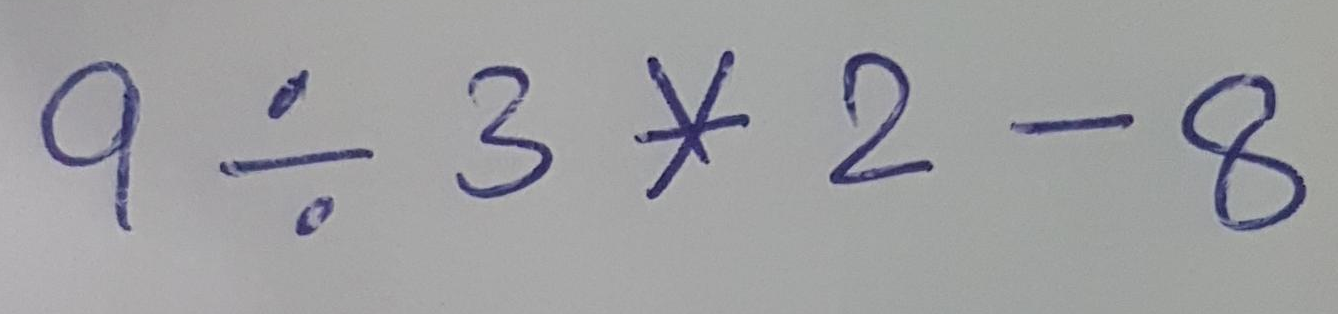 9 ÷ 3 * 2 - 8